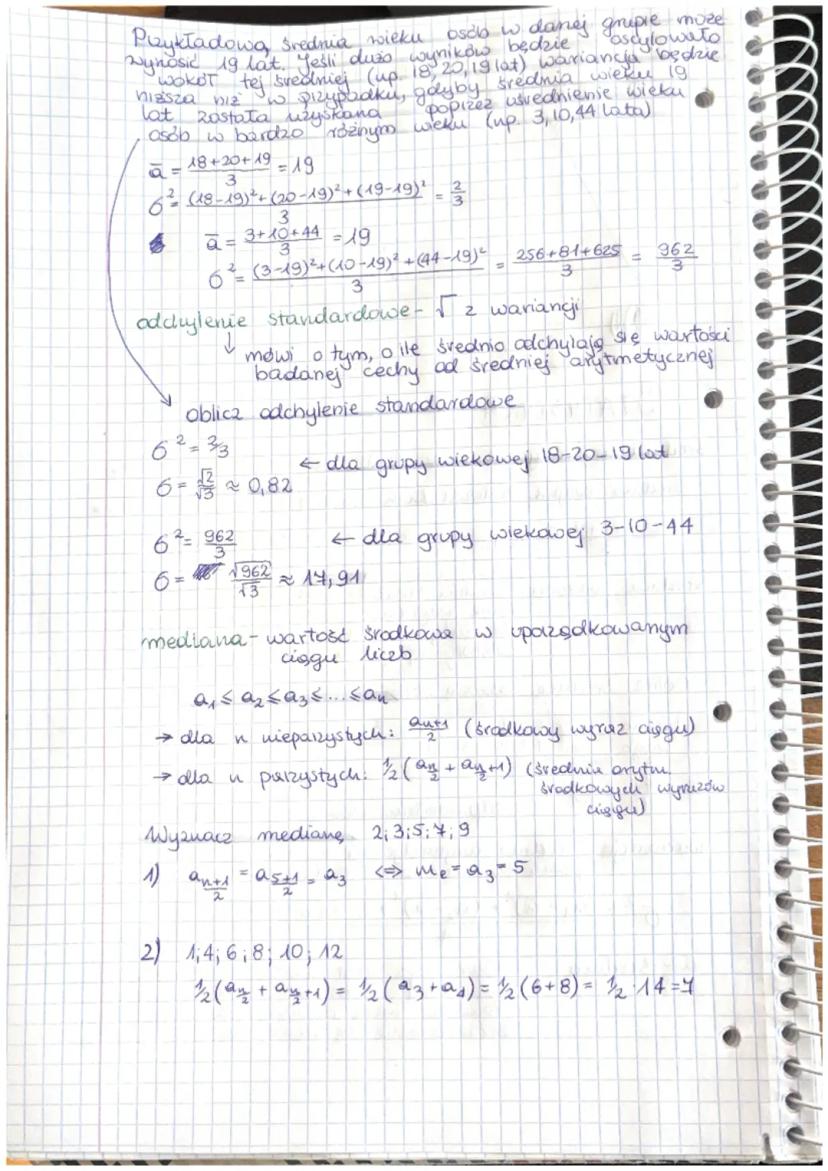 Przykładowa średnia wieku osób w danej grupie może
wynosić 19 lat. Jeśli dużo wyników będzie oscylowało
wokół tej średniej (np. 18, 20, 19 lat) wariancja będzie
niższa niż w przypadku, gdyby średnia wieku 19
lat została uzyskana poprzez uśrednienie wieku
osób w bardzo różnym wieku (np. 3, 10, 44 lata)
ā = (18+20+19)/3 = 19
б² = ((18-19)²+(20-19)²+(19-19)²)/3 = 2/3
ā = (3+10+44)/3 = 19
б² = ((3-19)²+(10-19)²+(44-19)²)/3 = (256+81+625)/3 = 962/3
odchylenie standardowe - √ z wariancji
↓ mówi o tym, o ile średnio odchylają się wartości
badanej cechy od średniej arytmetycznej
oblicz odchylenie standardowe
б² = 2/3
← dla grupy wiekowej 18-20-19 lat
б = √2/√3 ≈ 0,82
б² = 962/3 ← dla grupy wiekowej 3-10-44
б = √962/√3 ≈ 17,91
mediana - wartość środkowa w uporządkowanym
ciągu liczb
a₁ ≤ a₂ ≤ a₃ ≤ ... ≤ aₙ
→ dla n nieparzystych: a n+1/2 (środkowy wyraz ciągu)
→ dla n parzystych: 1/2 (a n/2 + a n/2 +1) (średnia arytm.
środkowych wyrazów
ciągu)
Wyznacz medianę 2; 3; 5; 7; 9
1) a n+1/2 = a 5+1/2 = a₃ <=> me = a₃ = 5
2) 1; 4; 6; 8; 10; 12
1/2 (a n/2 + a n/2 +1) = 1/2 (a₃ + a₄) = 1/2 (6+8) = 1/2 · 14 = 7